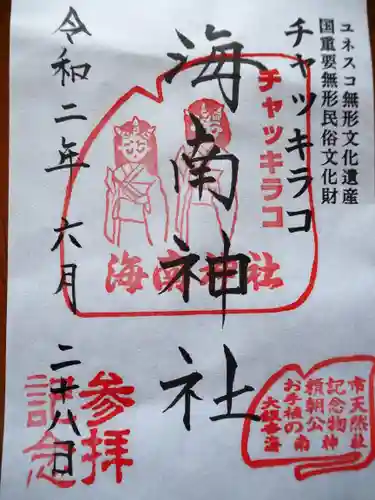 ユネスコ無形文化遺産
国重要無形民俗文化財
チャッキラコ
チャッキラコ
海南神社
海南神社
令和二年 六月 二十八日
参拝
記念
市天然
記念物
頼朝公
お手植の